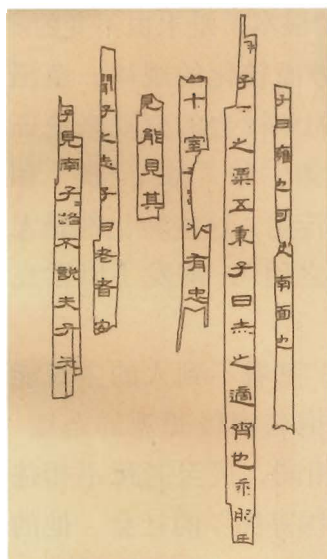 子曰雍也可使南面也
冉子之粟五秉子曰赤之適齊也乘肥
十室有忠
見能見其
聞子之志子曰老者安
子見南子路不說夫子矢